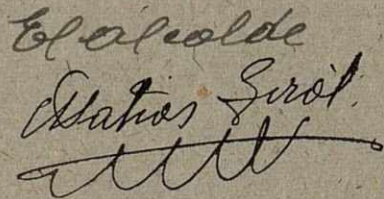 El alcalde
Matias Giról.